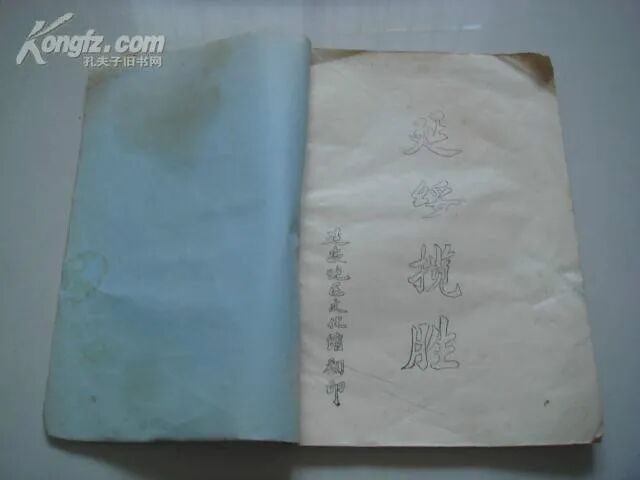 Kongfz.com
孔夫子旧书网
延绥揽胜
延安地区文化馆翻印